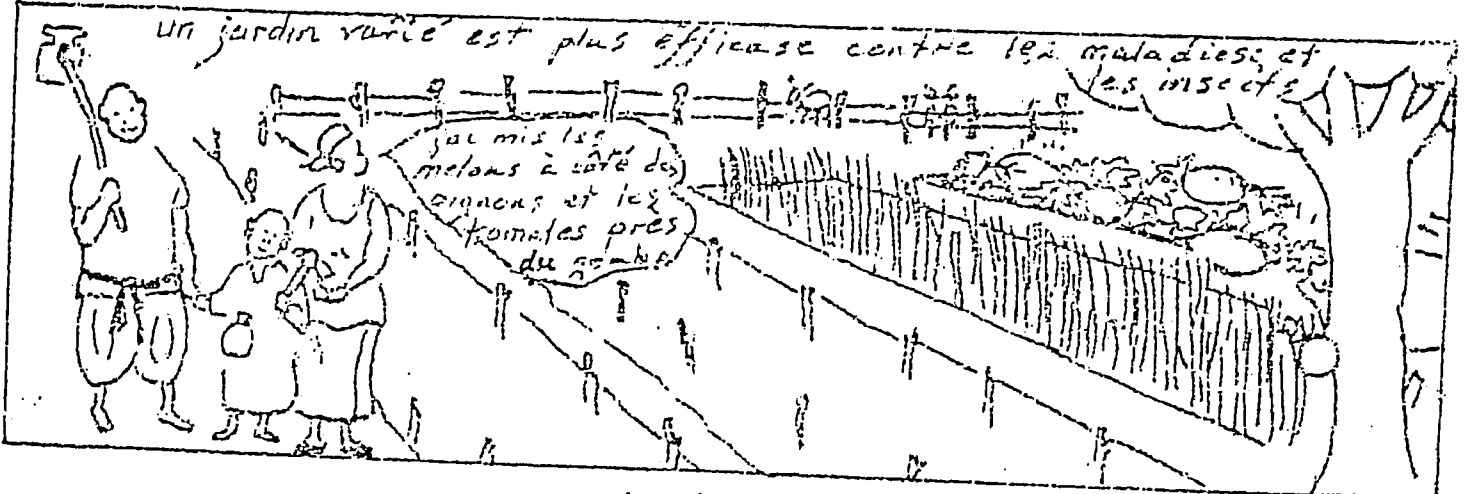 un jardin varié est plus efficase contre les maladies et
les insects
jai mis les
melons à côté des
oignons et les
tomates près
du gombo